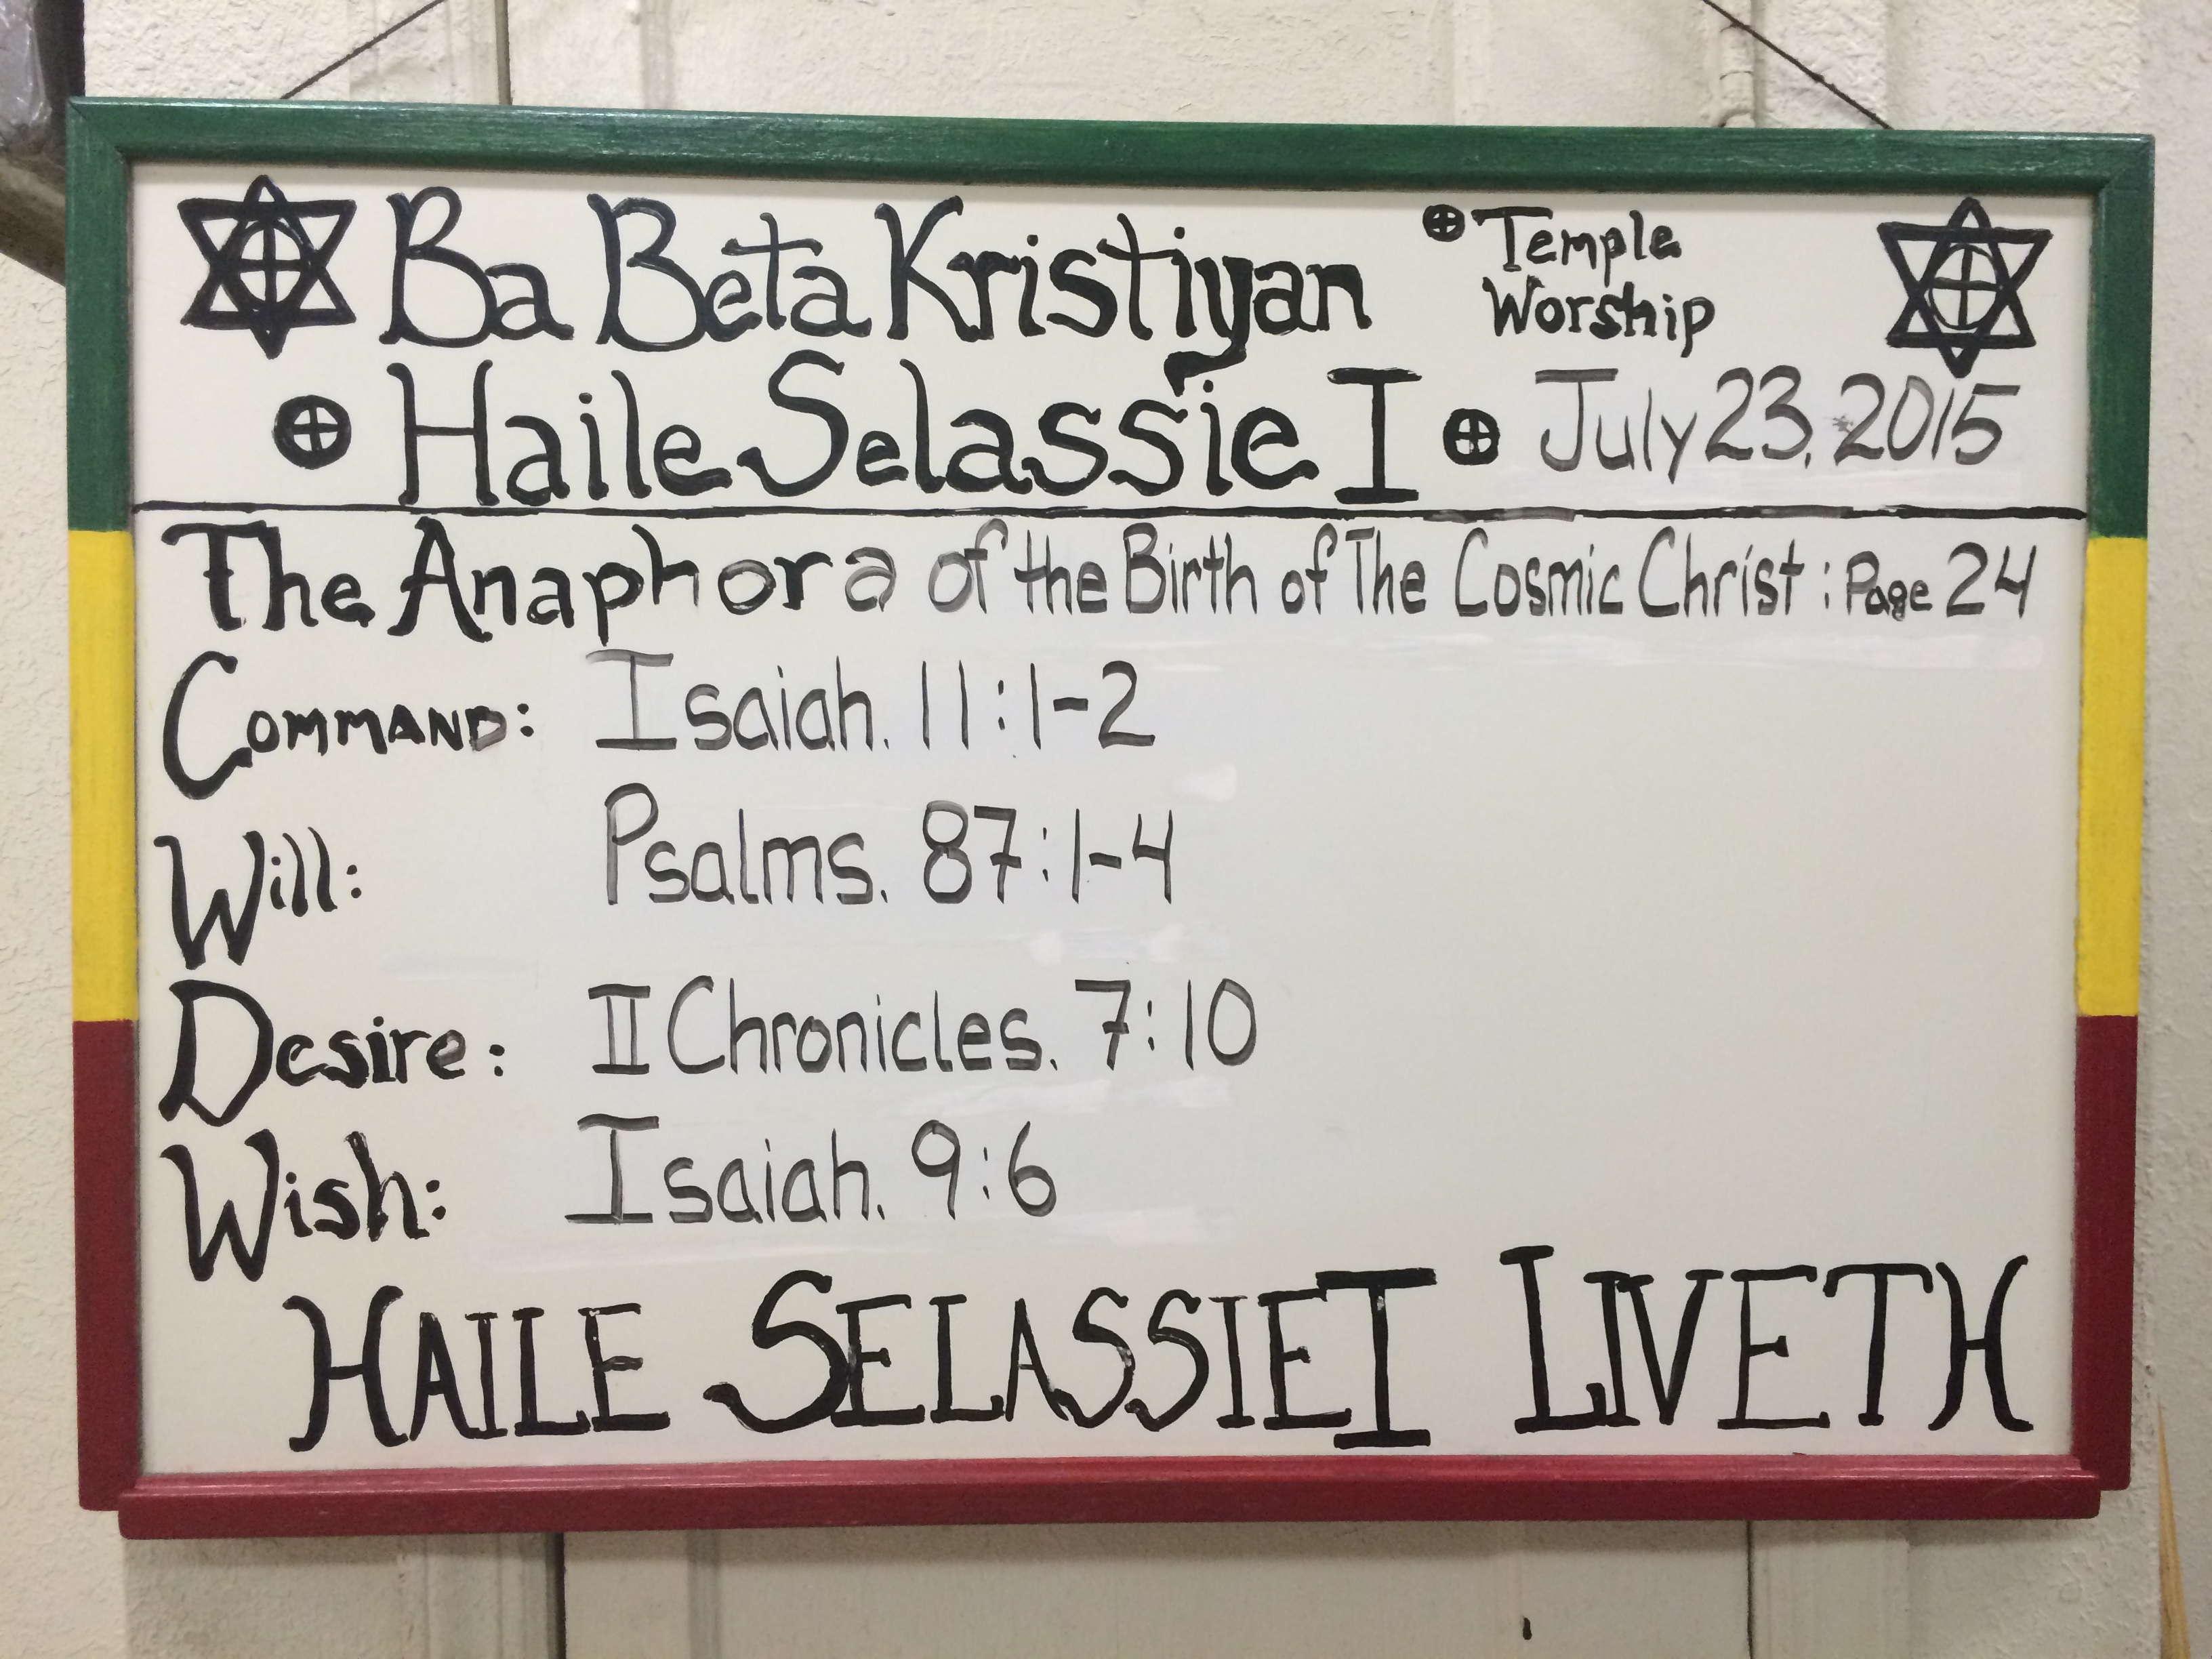 Ba Beta Kristiyan
Temple
Worship
Haile Selassie I
July 23, 2015
The Anaphora of the Birth of The Cosmic Christ : Page 24
COMMAND: Isaiah. 11:1-2
Will: Psalms. 87:1-4
Desire: II Chronicles. 7:10
Wish: Isaiah. 9:6
HAILE SELASSIE I LIVETH